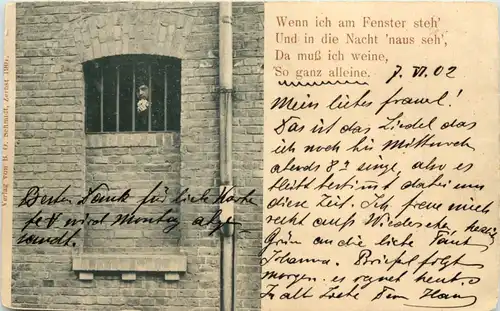 Verlag von R. O. Schmidt, Zerbst 1901.
Wenn ich am Fenster steh'
Und in die Nacht 'naus seh',
Da muß ich weine,
So ganz alleine.
7. VI. 02
Mein liebes
Das ist das Liedel das
ich noch bis Mittwoch
abends 8 singe, also es
bleibt bestimmt dabei um
diese Zeit. Ich freue mich
recht aufs Wiedersehen,
Grüß an die liebe Tant
Johanna. Briefel folgt
morgen. es regnet heut.
In alt Liebe Dein Hans
Besten Dank für liebe Karte
wird Montag
sandt.